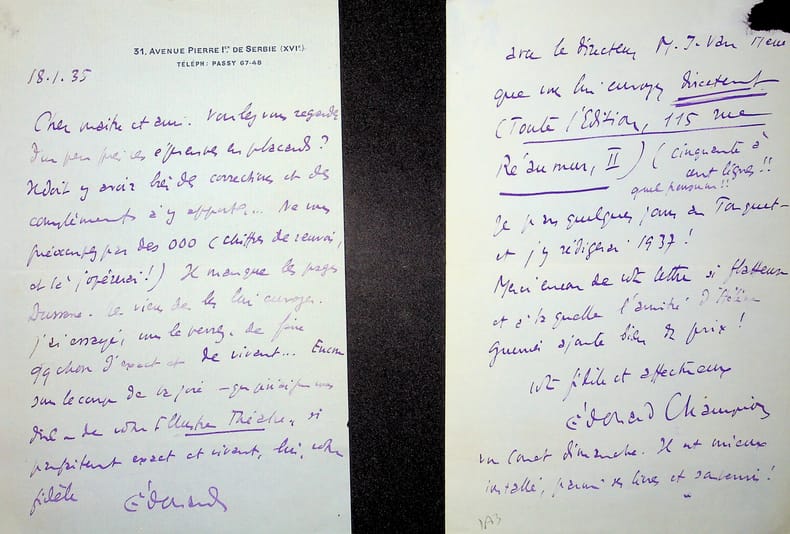 31, AVENUE PIERRE Ier DE SERBIE (XVIe)
TÉLÉPH: PASSY 67-48
18.1.35
Cher maître et ami. Voulez vous regarder
d'un peu près ces épreuves en placards?
Il doit y avoir des corrections et des
compléments à y apporter... Ne vous
préoccupez pas des 000 (chiffres de renvoi,
et là j'opérerai!) Il manque les pages
Dussane. Je viens de les lui envoyer.
J'ai essayé, vous le verrez, de faire
qq chose d'exact et de vivant... Encore
sous le coup de la joie
de votre Illustre Théâtre, si
parfaitement exact et vivant, lui, votre
fidèle
Édouard
avec le directeur M. J. Van
que vous lui envoyez directement
(Toute l'Edition, 115 rue
Réaumur, II) (cinquante à
cent lignes!!
Je pars quelques jours au Touquet
et j'y rédigerai 1937!
Merci encore de votre lettre si flatteuse
et à laquelle l'amitié d'Hélène
ajoute bien du prix!
votre fidèle et affectueux
Édouard Champion
vu Conet dimanche. Il est mieux
installé, parmi ses livres et souvenirs!